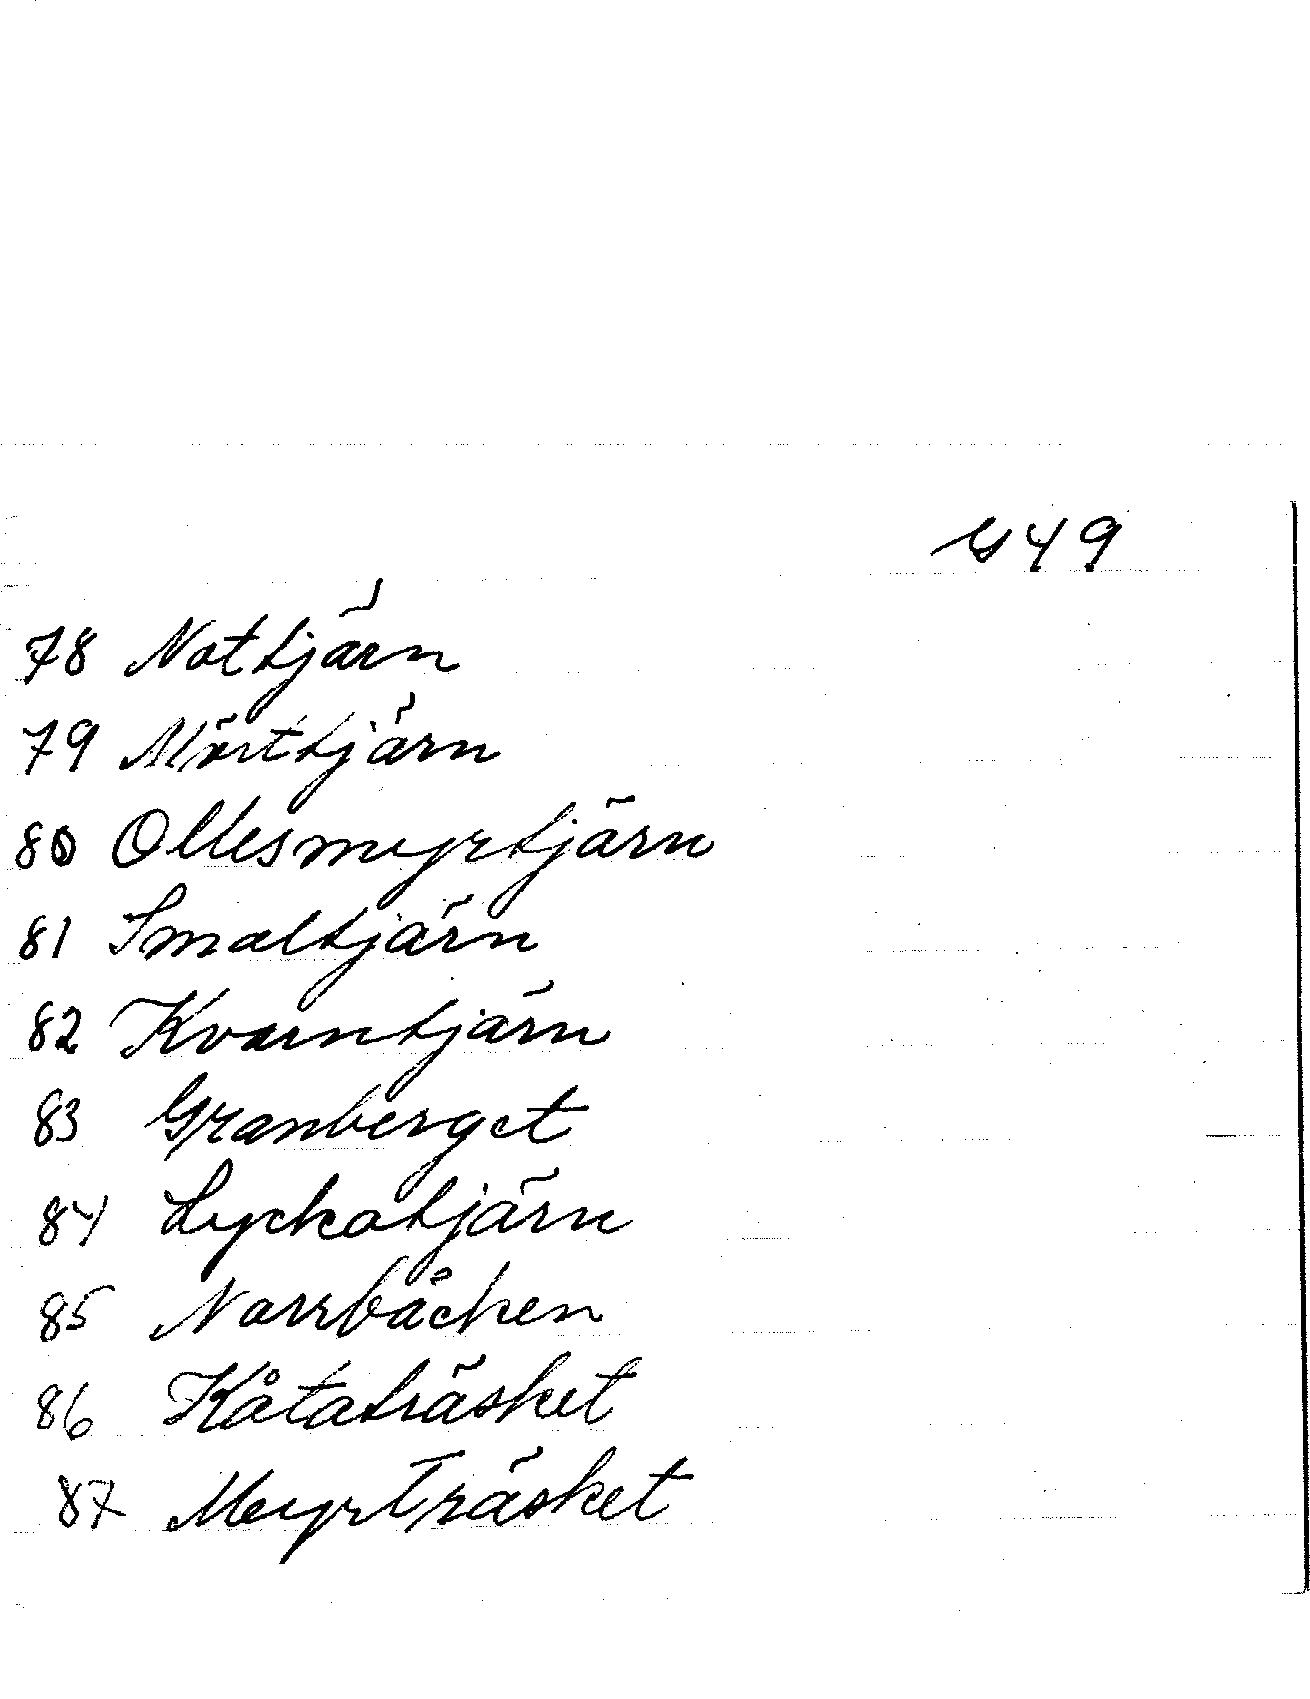 G 49
78 Nottjärn
79 Mörttjärn
80 Ollesmyrtjärn
81 Smaltjärn
82 Kvarntjärn
83 Granberget
84 Lyckotjärn
85 Norrbäcken
86 Kåtaträsket
87 Myrträsket